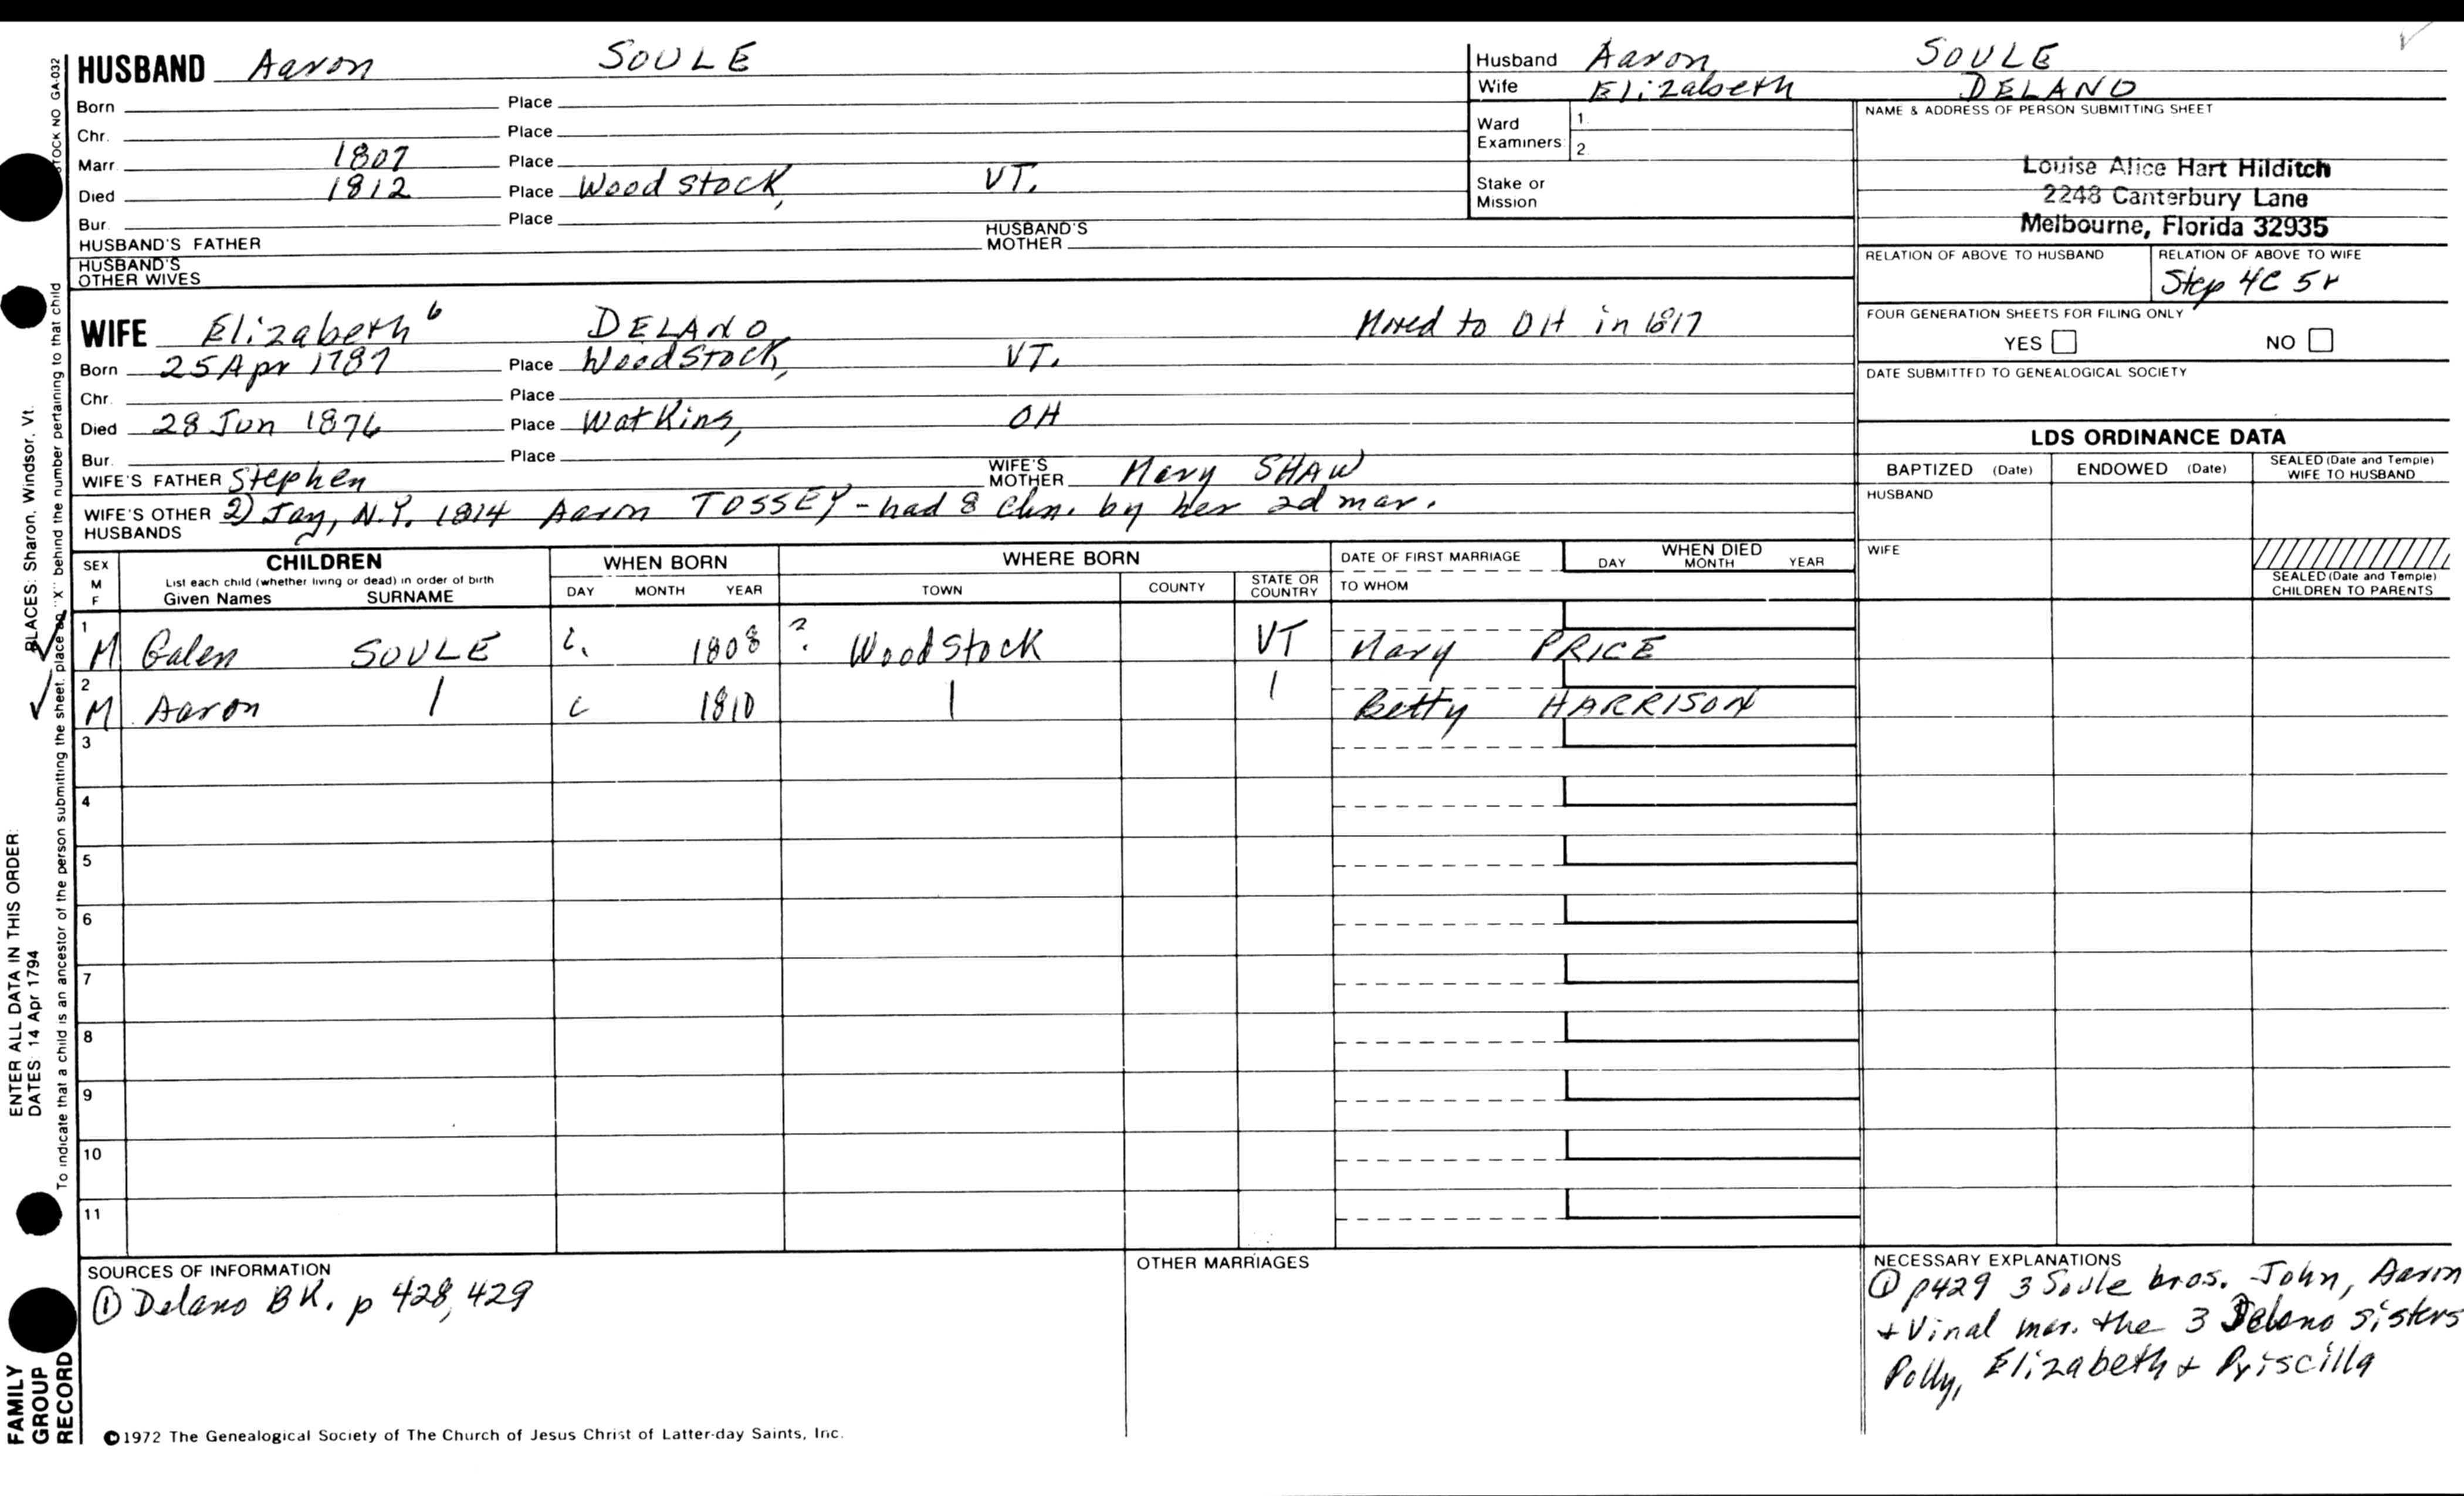 HUSBAND Aaron SOULE
Born Place
Chr. Place
Marr. 1807 Place
Died 1812 Place Woodstock, VT.
Bur. Place
HUSBAND'S FATHER HUSBAND'S MOTHER
HUSBAND'S OTHER WIVES
Husband Aaron SOULE
Wife Elizabeth DELANO
Ward Examiners: 1. 2.
Stake or Mission
NAME & ADDRESS OF PERSON SUBMITTING SHEET
Louise Alice Hart Hilditch
2248 Canterbury Lane
Melbourne, Florida 32935
RELATION OF ABOVE TO HUSBAND RELATION OF ABOVE TO WIFE
Step 4C 5r
WIFE Elizabeth 6 DELANO Moved to OH in 1817
Born 25 Apr 1787 Place Woodstock, VT.
Chr. Place
Died 28 Jun 1876 Place Watkins, OH
Bur. Place
WIFE'S FATHER Stephen WIFE'S MOTHER Mary SHAW
WIFE'S OTHER HUSBANDS 2) Jay, N.Y. 1814 Aaron TOSSEY - had 8 chn. by her 2d mar.
FOUR GENERATION SHEETS FOR FILING ONLY
YES NO
DATE SUBMITTED TO GENEALOGICAL SOCIETY
LDS ORDINANCE DATA
BAPTIZED (Date) ENDOWED (Date) SEALED (Date and Temple) WIFE TO HUSBAND
HUSBAND
WIFE
SEALED (Date and Temple) CHILDREN TO PARENTS
SEX M F CHILDREN WHEN BORN WHERE BORN DATE OF FIRST MARRIAGE WHEN DIED
List each child (whether living or dead) in order of birth
Given Names SURNAME DAY MONTH YEAR TOWN COUNTY STATE OR COUNTRY TO WHOM DAY MONTH YEAR
1 M Galen SOULE c. 1808 ? Woodstock VT Mary PRICE
2 M Aaron | c 1810 | | Betty HARRISON
3
4
5
6
7
8
9
10
11
SOURCES OF INFORMATION
① Delano BK. p 428, 429
OTHER MARRIAGES
NECESSARY EXPLANATIONS
① p429 3 Soule bros. John, Aaron
+ Vinal mar. the 3 Delano sisters
Polly, Elizabeth + Priscilla
©1972 The Genealogical Society of The Church of Jesus Christ of Latter-day Saints, Inc.
STOCK NO GA-032
To indicate that a child is an ancestor of the person submitting the sheet, place an "X" behind the number pertaining to that child
ENTER ALL DATA IN THIS ORDER:
DATES: 14 Apr 1794
PLACES: Sharon, Windsor, Vt.
FAMILY
GROUP
RECORD